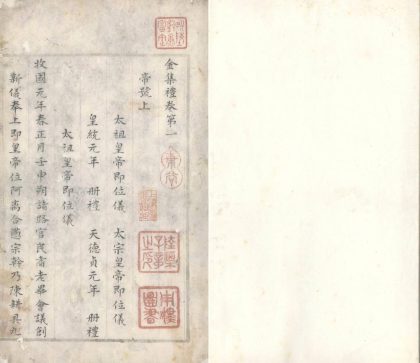 金集禮卷第一
帝號上
太祖皇帝即位儀 太宗皇帝即位儀
皇統元年 册禮 天德貞元年 册禮
太祖皇帝即位儀
收國元年春正月壬申朔諸路官民耆老畢會議創
新儀奉上即皇帝位阿离合懣宗幹乃陳耕具九